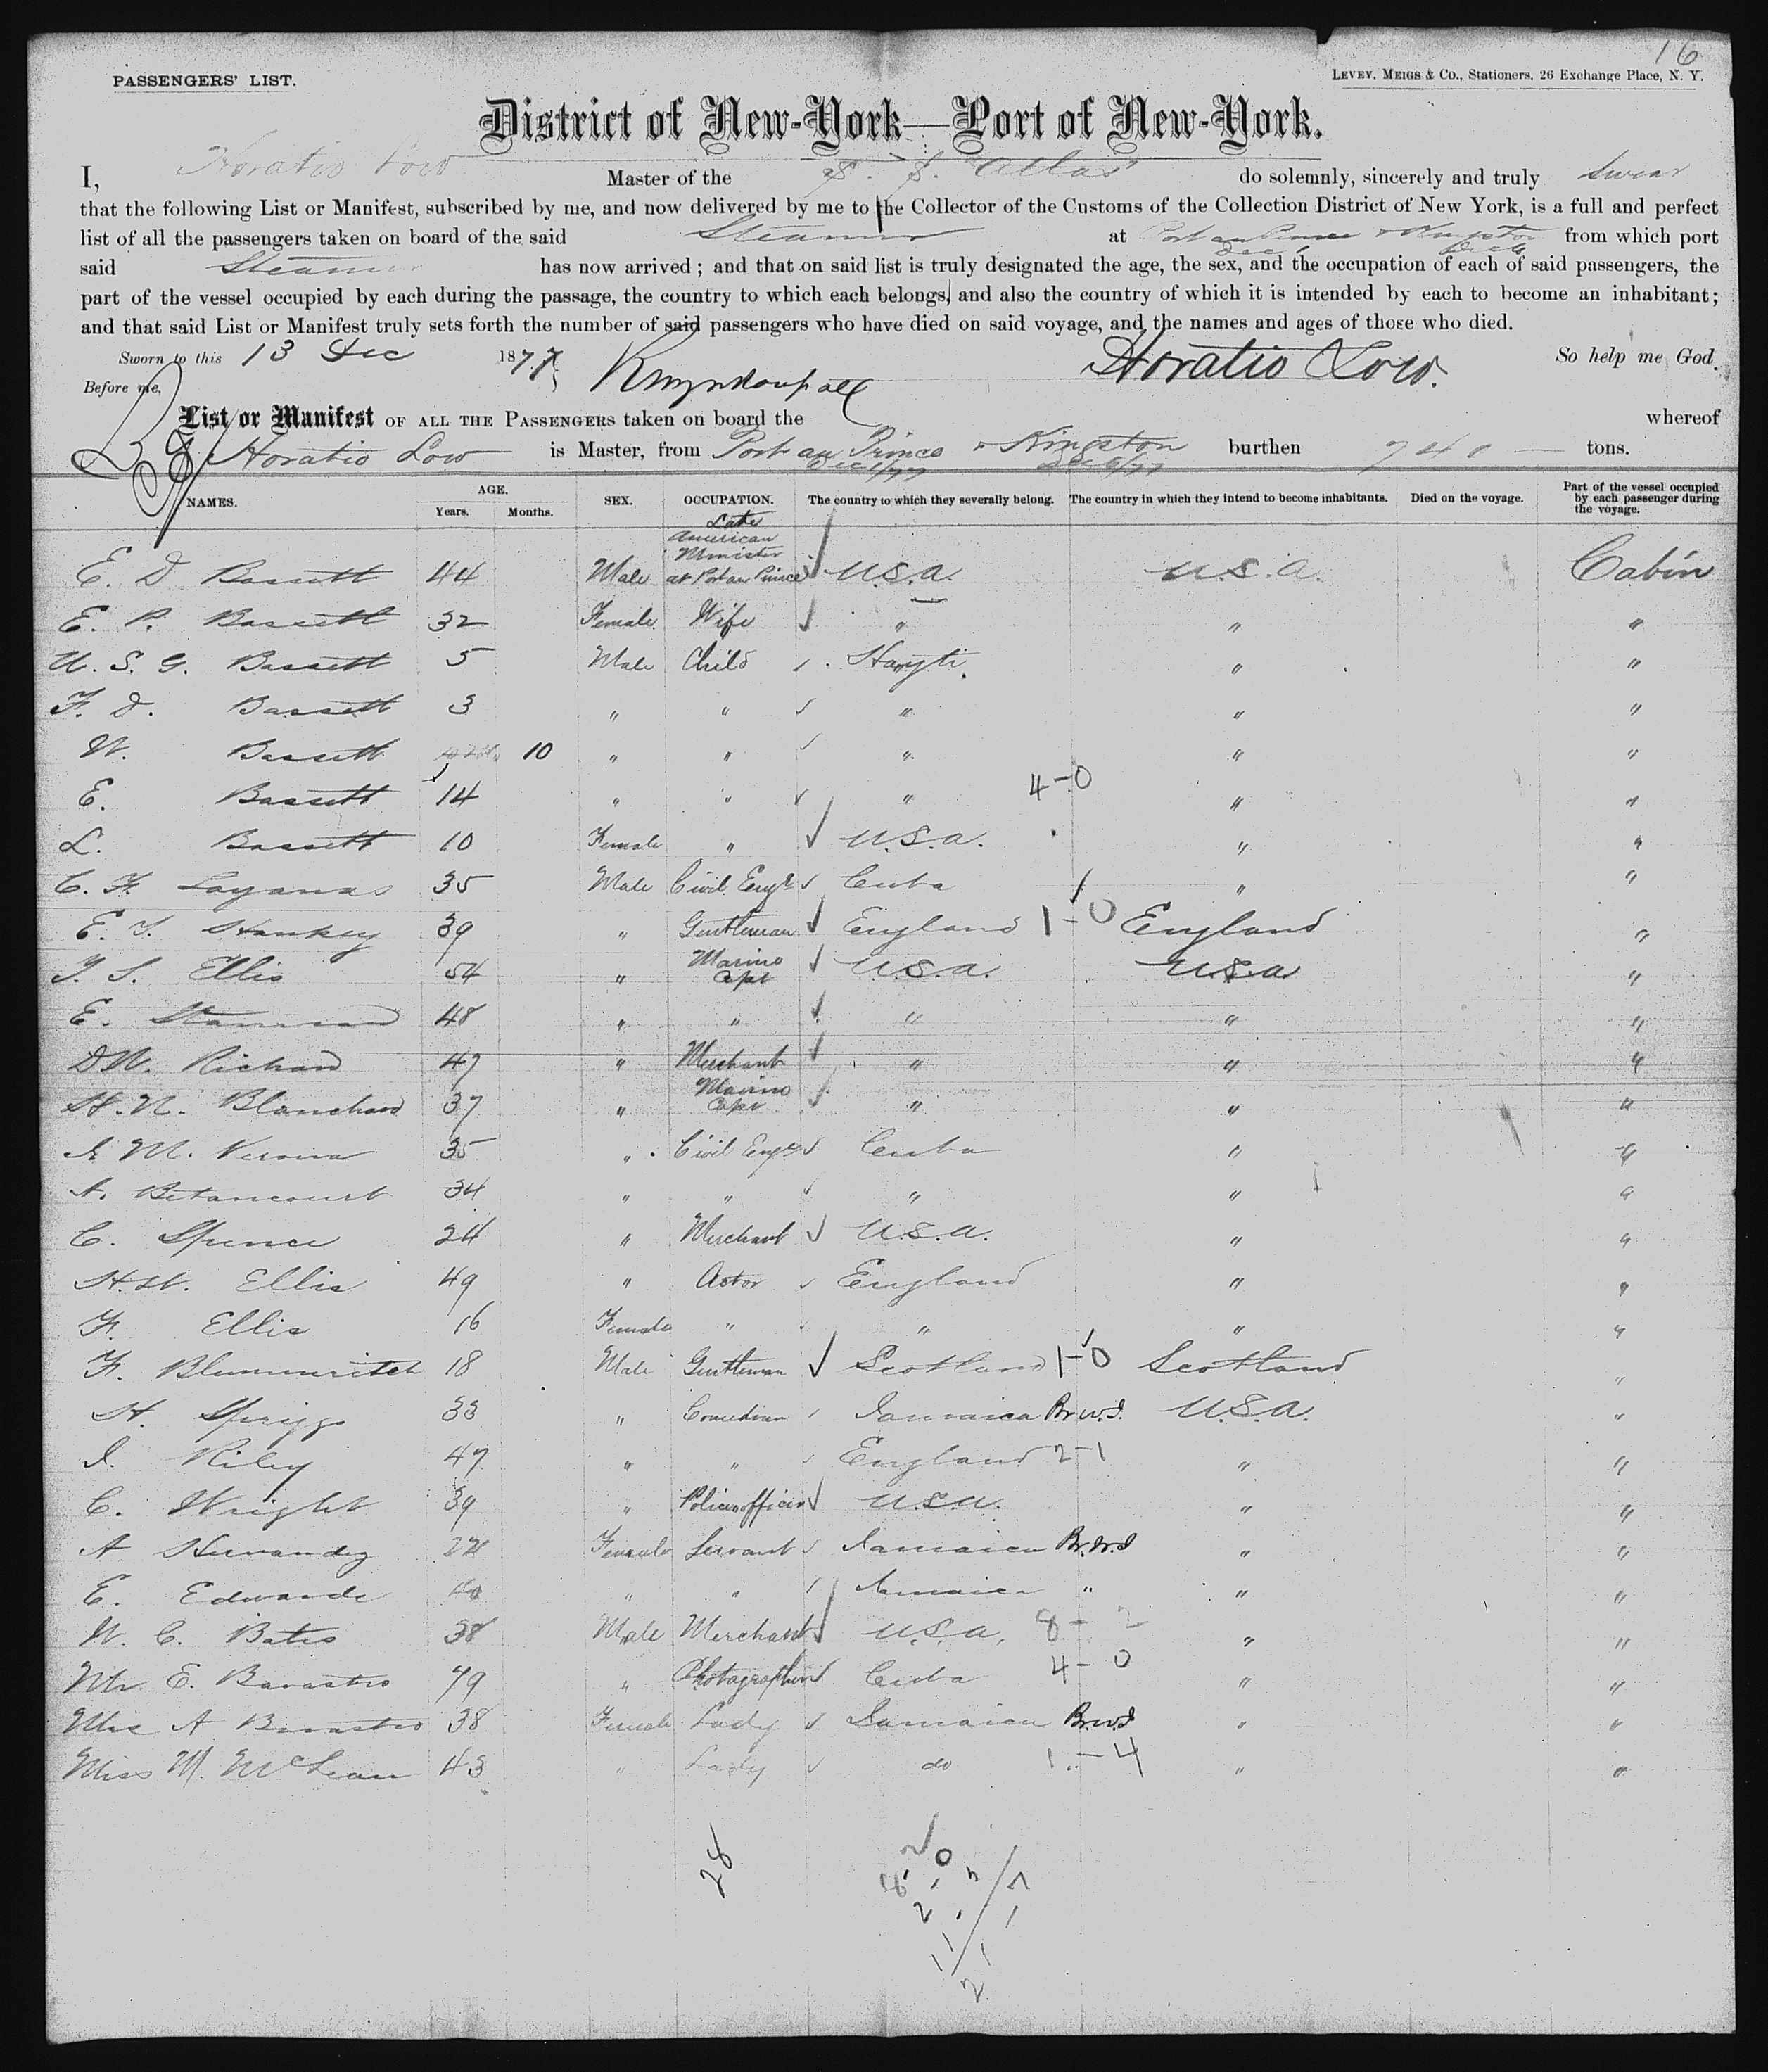 16
PASSENGERS' LIST.
LEVEY, MEIGS & Co., Stationers, 26 Exchange Place, N. Y.
District of New-York—Port of New-York.
I, Horatio Low Master of the S. S. "Atlas" do solemnly, sincerely and truly swear
that the following List or Manifest, subscribed by me, and now delivered by me to the Collector of the Customs of the Collection District of New York, is a full and perfect
list of all the passengers taken on board of the said Steamer at Port au Prince & Kingston from which port
said Steamer has now arrived; and that on said list is truly designated the age, the sex, and the occupation of each of said passengers, the
part of the vessel occupied by each during the passage, the country to which each belongs, and also the country of which it is intended by each to become an inhabitant;
and that said List or Manifest truly sets forth the number of said passengers who have died on said voyage, and the names and ages of those who died.
Sworn to this 13 Dec 1877 Horatio Low. So help me God.
Before me,
List or Manifest OF ALL THE PASSENGERS taken on board the whereof
Horatio Low is Master, from Port au Prince & Kingston burthen 740 tons.
Dec 1/77 Dec 6/77
NAMES. AGE. Years. Months. SEX. OCCUPATION. The country to which they severally belong. The country in which they intend to become inhabitants. Died on the voyage. Part of the vessel occupied by each passenger during the voyage.
E. D Bassett 44 Male Late American Minister at Port au Prince U.S.a. U.S.a. Cabin
E. P. Bassett 32 Female Wife " " "
U. S. G. Bassett 5 Male Child Hayti. " "
F. D. Bassett 3 " " " " "
W. Bassett 10 " " " " "
E. Bassett 14 " " " 4-0 " "
L. Bassett 10 Female " U.S.a. " "
C. F. Loyanas 35 Male Civil Engr Cuba " "
E. S. Hankey 39 " Gentleman England 1-0 England "
T. S. Ellis 54 " Marine Capt U.S.a. U.S.a "
E. 48 " " " " "
D W. Richard 47 " Merchant " " "
H. N. Blanchard 37 " Marine Capt " " "
A M. Verona 35 " Civil Engr Cuba " "
A. Betancourt 34 " " " " "
C. Spence 24 " Merchant U.S.a. " "
H. W. Ellis 49 " Actor England " "
F. Ellis 16 Female " " " "
F. 18 Male Gentleman Scotland 1-0 Scotland "
H. Spriggs 33 " Comedian Jamaica Br.W.I. U.S.a. "
J. Riley 47 " " England 2-1 " "
C. Wright 39 " Police officer U.S.a. " "
A Hernandez 22 Female Servant Jamaica Br.W.I " "
E. Edwards " " Jamaica " " "
W. C. Bates 38 Male Merchant U.S.a. 8-2 " "
Mr E. Barastro 49 " Photographer Cuba 4-0 " "
Mrs A Barastro 38 Female Lady Jamaica B.W.I " "
Miss M. McLean 43 " Lady do 1-4 " "
28